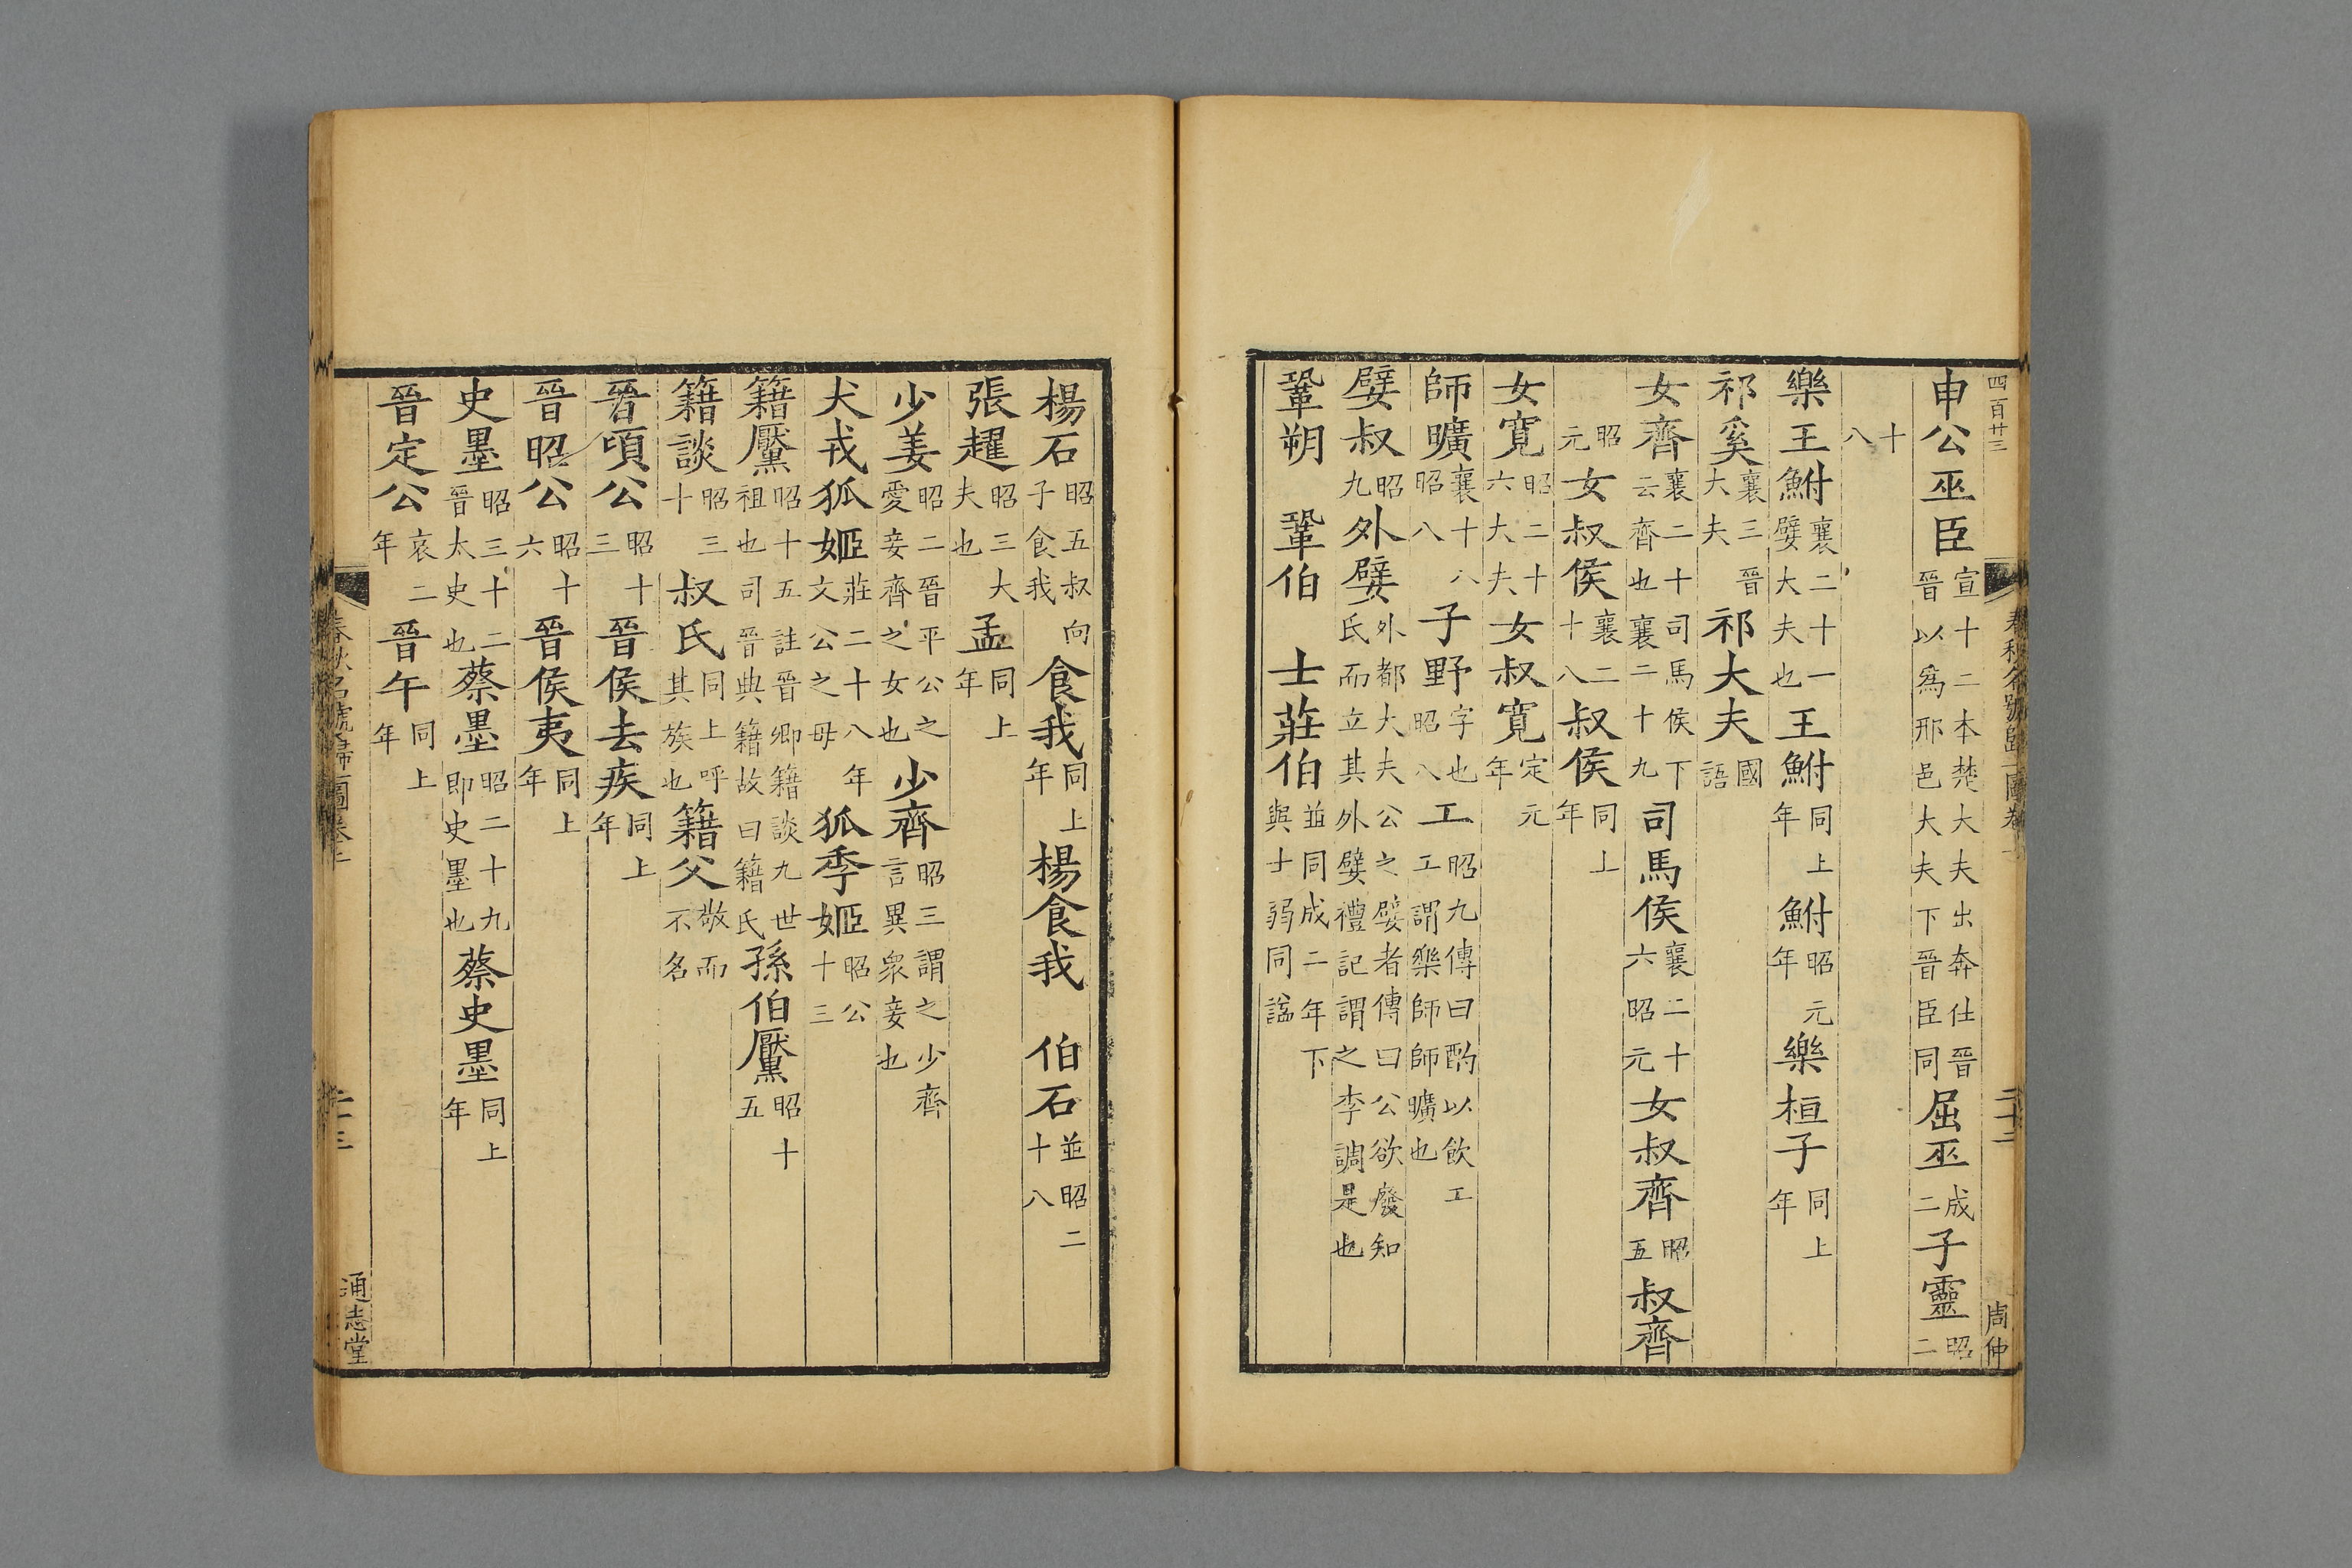 四百廿三
申公巫臣宣十二本楚大夫出奔仕晉晉以為邢邑大夫下晉臣同屈巫成二子靈昭二
十八
樂王鮒襄二十一嬖大夫也王鮒同上年鮒昭元年樂桓子同上年
祁奚襄三晉大夫祁大夫國語
女齊襄二十司馬侯下云齊也襄二十九司馬侯襄二十六昭元女叔齊昭五叔齊
昭元女叔侯襄二十八叔侯同上年
女寬昭二十六大夫女叔寬定元年
師曠襄十八昭八子野字也昭八工昭九傳曰酌以飲工工謂樂師師曠也
嬖叔昭九外嬖外都大夫公之嬖者傳曰公欲廢知氏而立其外嬖禮記謂之李調是也
鞏朔 鞏伯 士莊伯並同成二年下與士弱同諡
春秋名號歸一圖卷 二十二 周仲
楊石昭五叔向子食我食我同上年楊食我 伯石並昭二十八
張趯昭三大夫也孟同上年
少姜昭二晉平公之愛妾齊之女也少齊昭三謂之少齊言異眾妾也
犬戎狐姬莊二十八年文公之母狐季姬昭公十三
籍黶昭十五註晉卿籍談九世祖也司晉典籍故曰籍氏孫伯黶昭十五
籍談昭三十叔氏同上呼其族也籍父敬而不名
晉頃公昭十三晉侯去疾同上年
晉昭公昭十六晉侯夷同上年
史墨昭三十二晉太史也蔡墨昭二十九即史墨也蔡史墨同上年
晉定公哀二年晉午同上年
春秋名號歸一圖卷上 二十三 通志堂